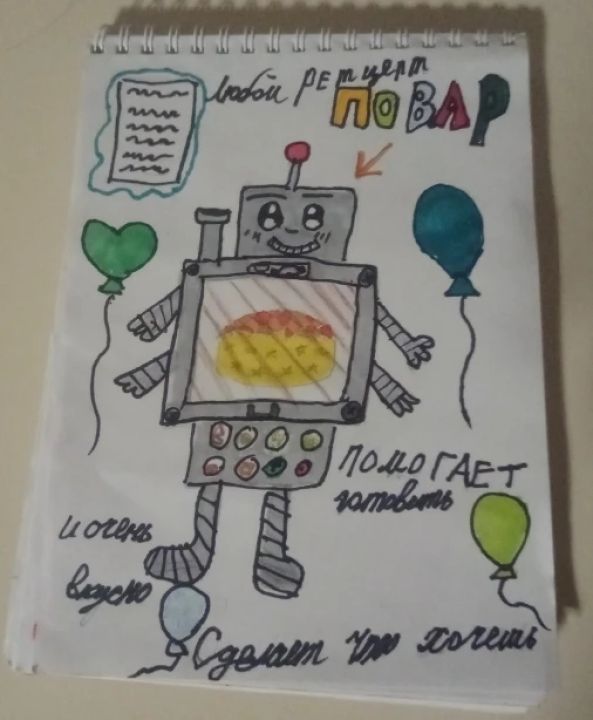 любой РЕтцерт
ПОВАР
ПОМОГАЕТ
готовить
и очень
вкусно
Сделает что хочешь